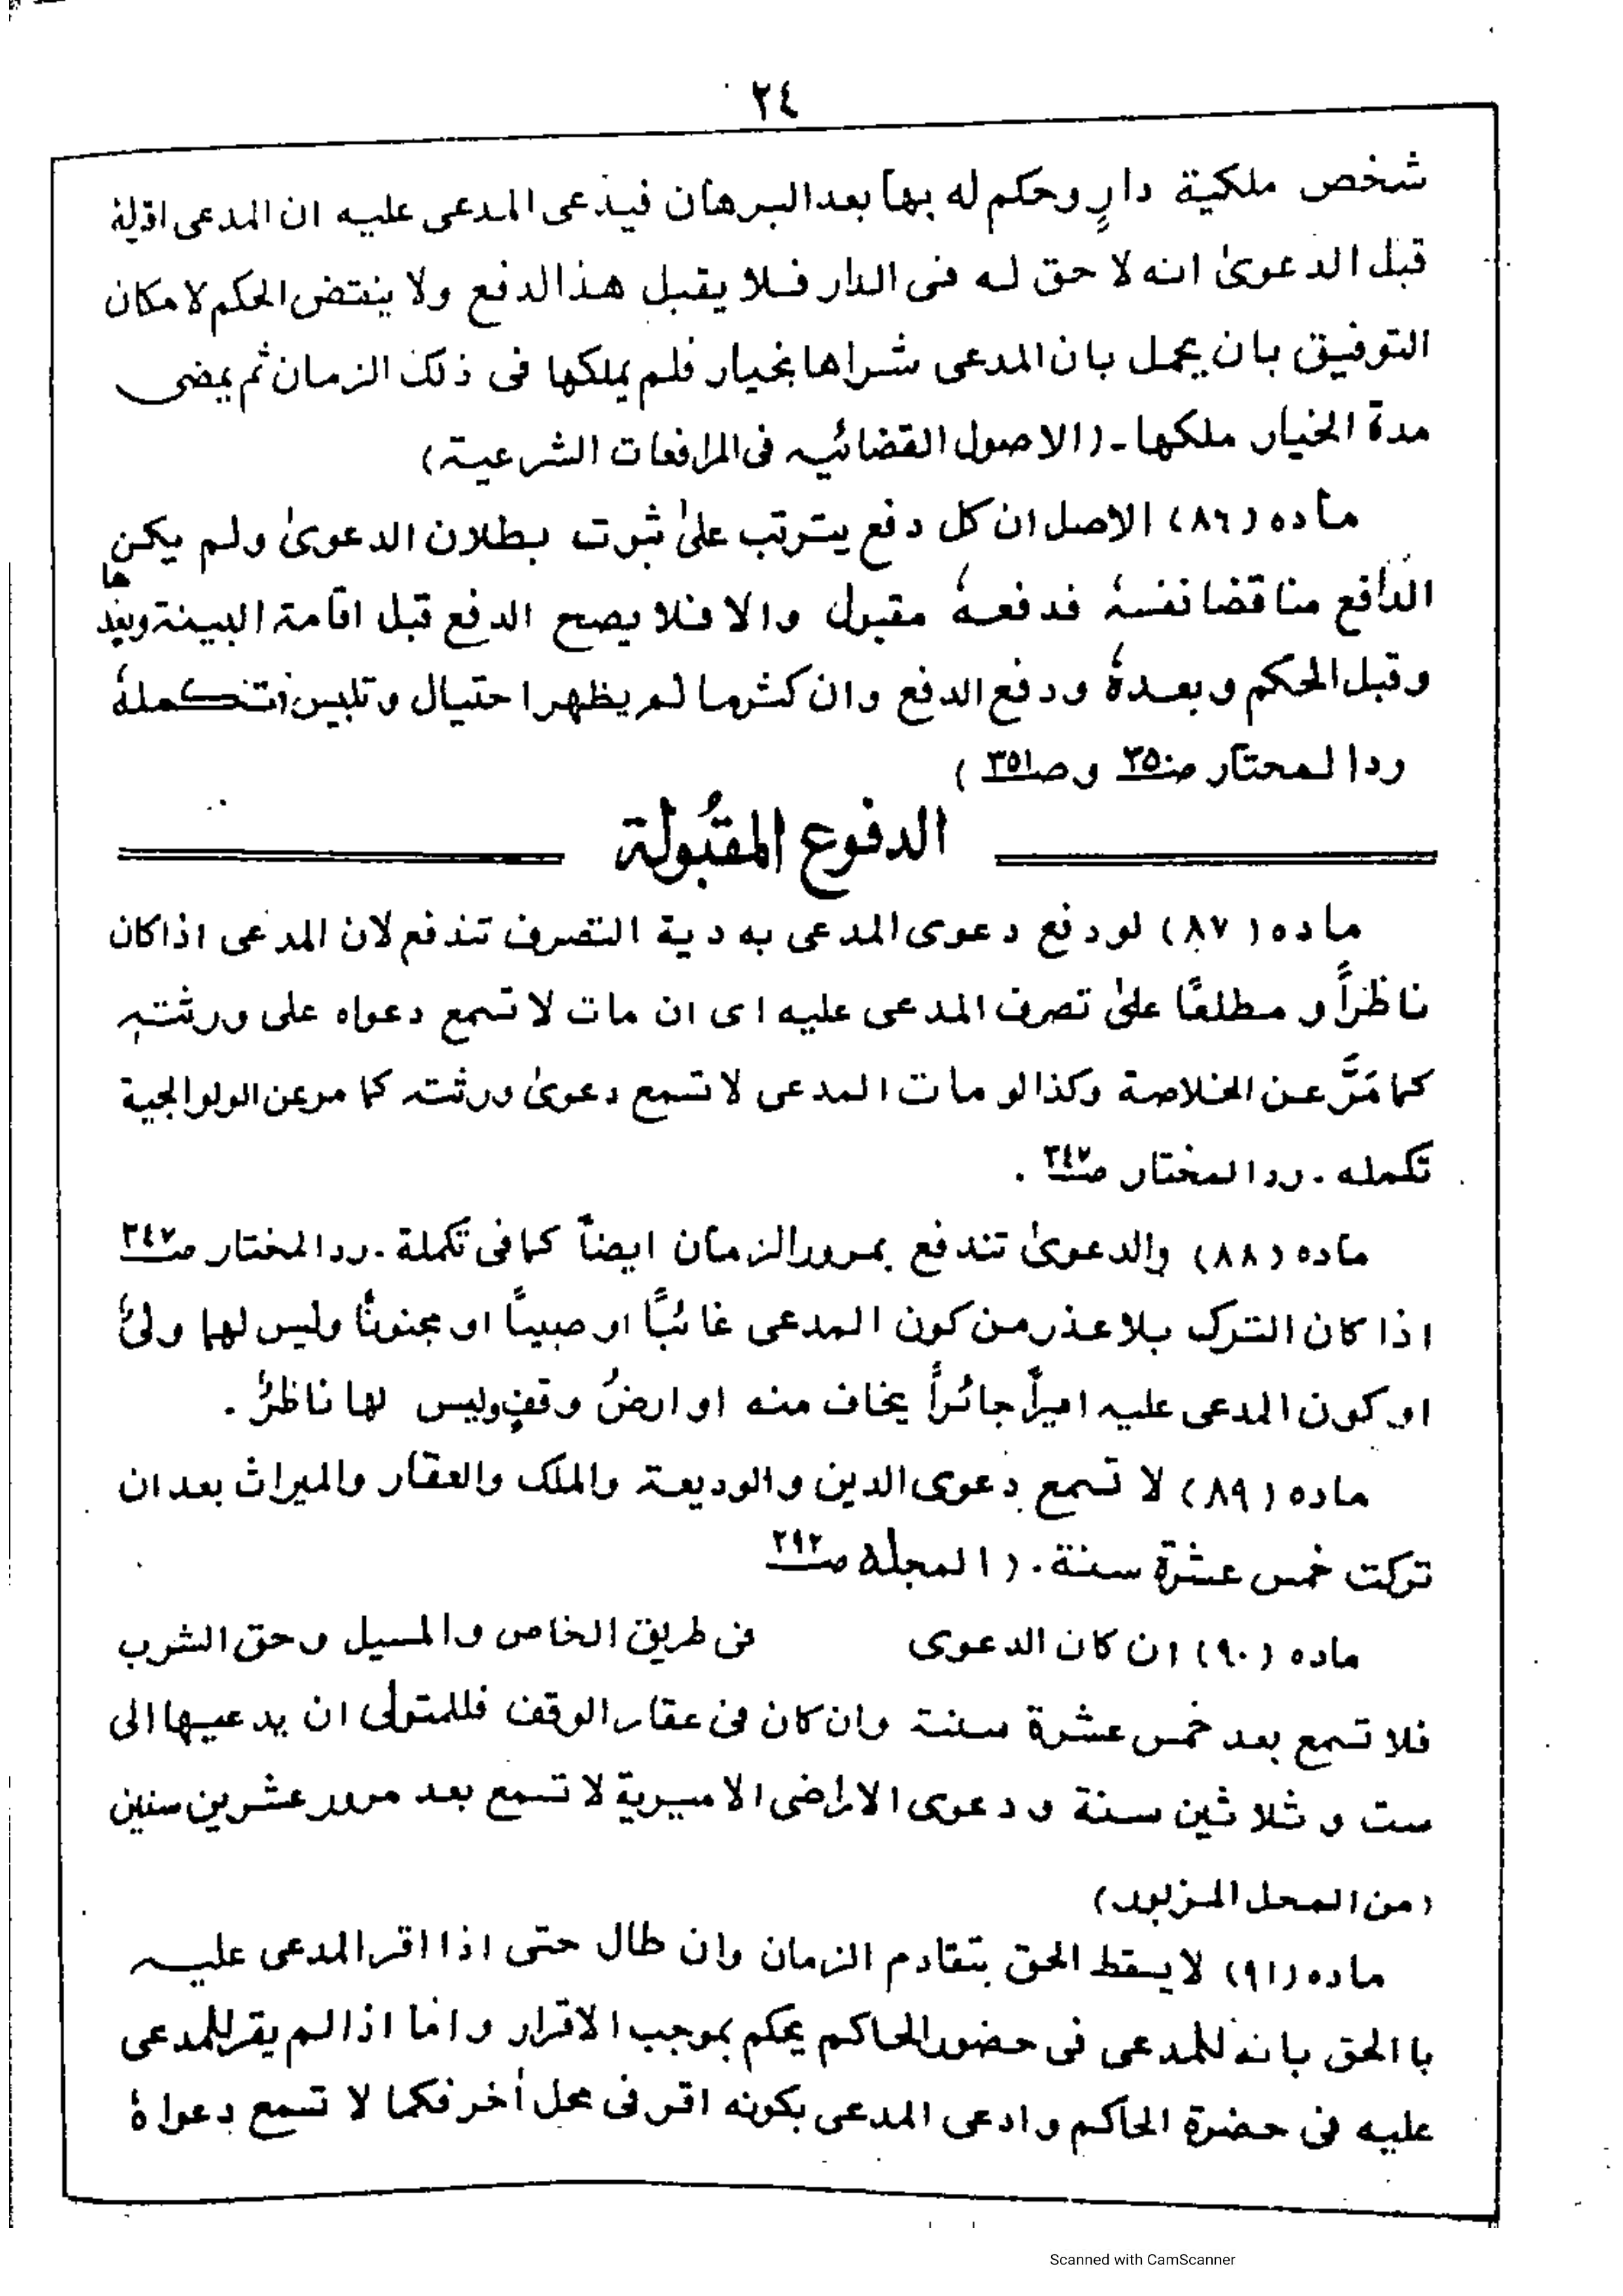 ٢٤
شخص ملكية دارٍ وحكم له بها بعد البرهان فيدعى المدعى عليه ان المدعى اقر له
قبل الدعوىٰ انه لا حق له فى الدار فلا يقبل هذا الدفع ولا ينتقض الحكم لامكان
التوفيق بان يحمل بان المدعى شراها بخيار فلم يملكها فى ذلك الزمان ثم يمضى
مدة الخيار ملكها ـ (الاصول القضائيه فى المرافعات الشرعية)
ماده (٨٦) الاصل ان كل دفع يترتب علىٰ ثبوت بطلان الدعوىٰ ولم يكن
الدافع مناقضا نفسهٗ فدفعهٗ مقبول والا فلا يصح الدفع قبل اقامة البينة وبعدها
وقبل الحكم وبعدهٗ ودفع الدفع وان كثر ما لم يظهر احتيال وتلبيس (تكملهٗ
ردا لمحتار صـ٣٥٠ وصـ٣٥١)
الدفوع المقبُولة
ماده (٨٧) لو دفع دعوى المدعى به دية التصرف تندفع لان المدعى اذا كان
ناظراً و مطلعًا علىٰ تصرف المدعى عليه اى ان مات لا تسمع دعواه على ورثته
كما مَرَّ عن الخلاصة وكذا لو مات المدعى لا تسمع دعوىٰ ورثته كما مر عن الولوالجية
تكمله ـ رد المختار صـ٣٤٧ .
ماده (٨٨) والدعوىٰ تندفع بمرور الزمان ايضاً كما فى تكملة ـ رد المختار صـ٣٤٧
اذا كان الترك بلا عذر من كون المدعى غائبًا او صبيًا او مجنونًا وليس لهما ولىٌ
او كون المدعى عليه اميراً جائراً يخاف منه او ارضُ وقفٍ وليس لها ناظرٌ .
ماده (٨٩) لا تسمع دعوى الدين والوديعة والملك والعقار والميراث بعد ان
تركت خمس عشرة سنة . (المجلة صـ٢٩٢
ماده (٩٠) ان كان الدعوى فى طريق الخاص والمسيل وحق الشرب
فلا تسمع بعد خمس عشرة سنة وان كان فى عقار الوقف فللمتولى ان يدعيها الى
ست و ثلاثين سنة و دعوى الاراضى الاميرية لا تسمع بعد مرور عشرين سنين
(من المحل المزبور)
ماده (٩١) لا يسقط الحق بتقادم الزمان وان طال حتى اذا اقر المدعى عليه
با الحق بانه للمدعى فى حضور الحاكم يحكم بموجب الاقرار واما اذا لم يقر للمدعى
عليه فى حضرة الحاكم وادعى المدعى بكونه اقر فى محل أخر فكما لا تسمع دعواهٗ
Scanned with CamScanner